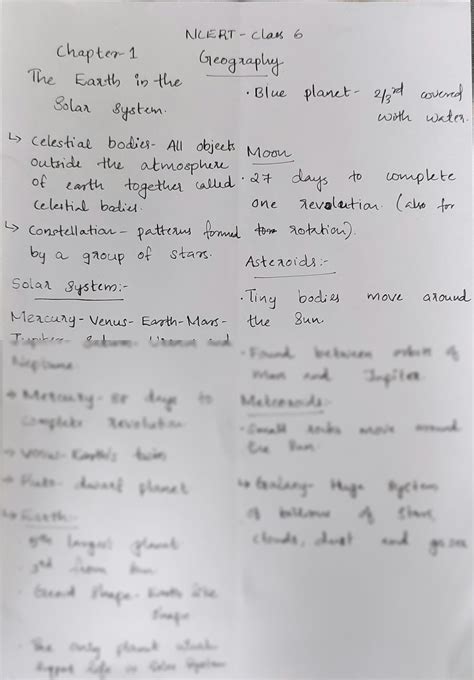 NCERT - Class 6
Geography
Chapter-1
The Earth in the
Solar System.
↳ Celestial bodies- All objects
outside the atmosphere
of earth together called
celestial bodies.
↳ Constellation - patterns formed
by a group of stars.
Solar System:-
Mercury- Venus- Earth- Mars-
Jupiter- Saturn- Uranus and
Neptune.
→ Mercury- 88 days to
complete revolution
→ Venus- Earth's twin
→ Pluto- dwarf planet
↳ Earth:-
5th largest planet
3rd from Sun
Shape- Earth like
Shape
The only planet which
life in Solar System
• Blue planet- 2/3rd covered
with water.
Moon
• 27 days to complete
one revolution. (also for
rotation).
Asteroids:-
• Tiny bodies move around
the Sun
• Found between orbits of
Mars and Jupiter.
Meteoroids:-
• Small rocks move around
the Sun.
↳ Galaxy- Huge System
of billions of Stars,
clouds, dust and gases